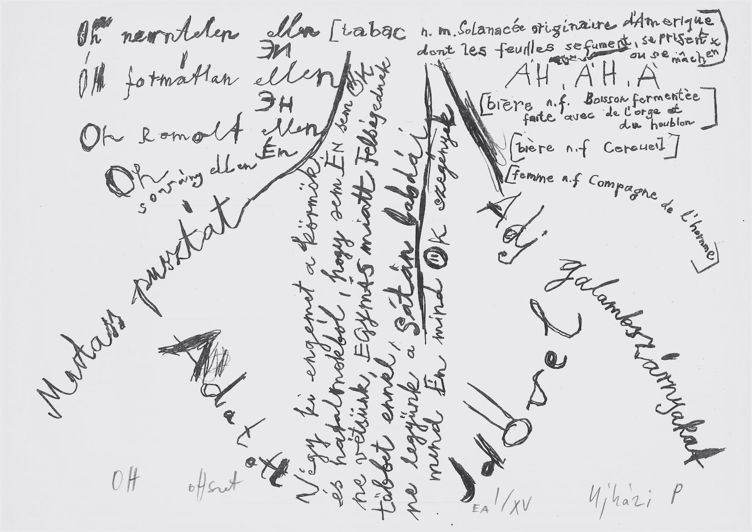 Óh nemntelen ellen
ÉN
ÓH formátlan ellen
ÉH
Oh Romolt ellen
Én
Oh
sorsáng ellen
[tabac n. m. Solanacée originaire d'Amerique
dont les feuilles se fument, se prisent x
ou se mâchent
ÁH, ÁH, Á
[bière n.f. Boisson fermentée
faite avec de l'orge et
du houblon
[bière n.f Cercueil]
[femme n.f Compagne de l'homme]
Mutass pusztát
Adj
galambszárnyakat
Adatott
Jel
Végy ki engemet a körmök
és hatalmokból, hogy sem ÉN sem ŐK
ne vétsünk, EGYMÁS miatt Felségednek
többet ennél,
ne legyünk a Sátán labdái
mind Én mind ŐK szegények
OH offset EA 1/XV Ujházi P